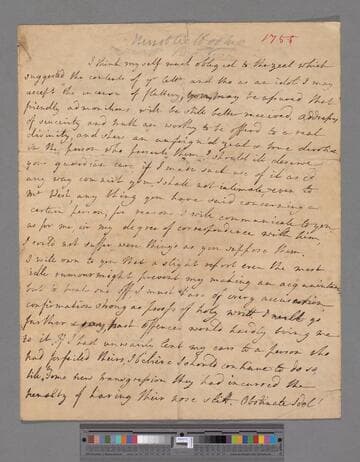 1755
I think my self much obliged to the zeal which
suggested the contents of yr letr and tho as an idol I may
accept the incense of flattery, you may be assured that
friendly admonitions will be still better received, addresses
of sincerity and truth are worthy to be offerd to a real
divinity, and shew an unfeigned zeal & some devotion
in the person who presents them, I should ill deserve
your good opinion if I made such use of it as cd
any way commit you I shall not intimate even to
Mr West any thing you have said concerning a
certain person, for reasons I will communicate to you
as for me in my degree of correspondence with him
I could not suffer were things as you suppose them.
I will own to you that a slight report even the most
idle rumour might prevent my making an acquaintance
but to break one off I must have of every accusation
confirmation strong as proofs of holy writt I will go
further & say past offences would hardly bring me
to it, if I had unwarily lent my ears to a person who
had forfeited theirs I believe I should continue to do so
till some new transgression they had incurred the
penalty of having their nose slitt. Obstinate Idol!